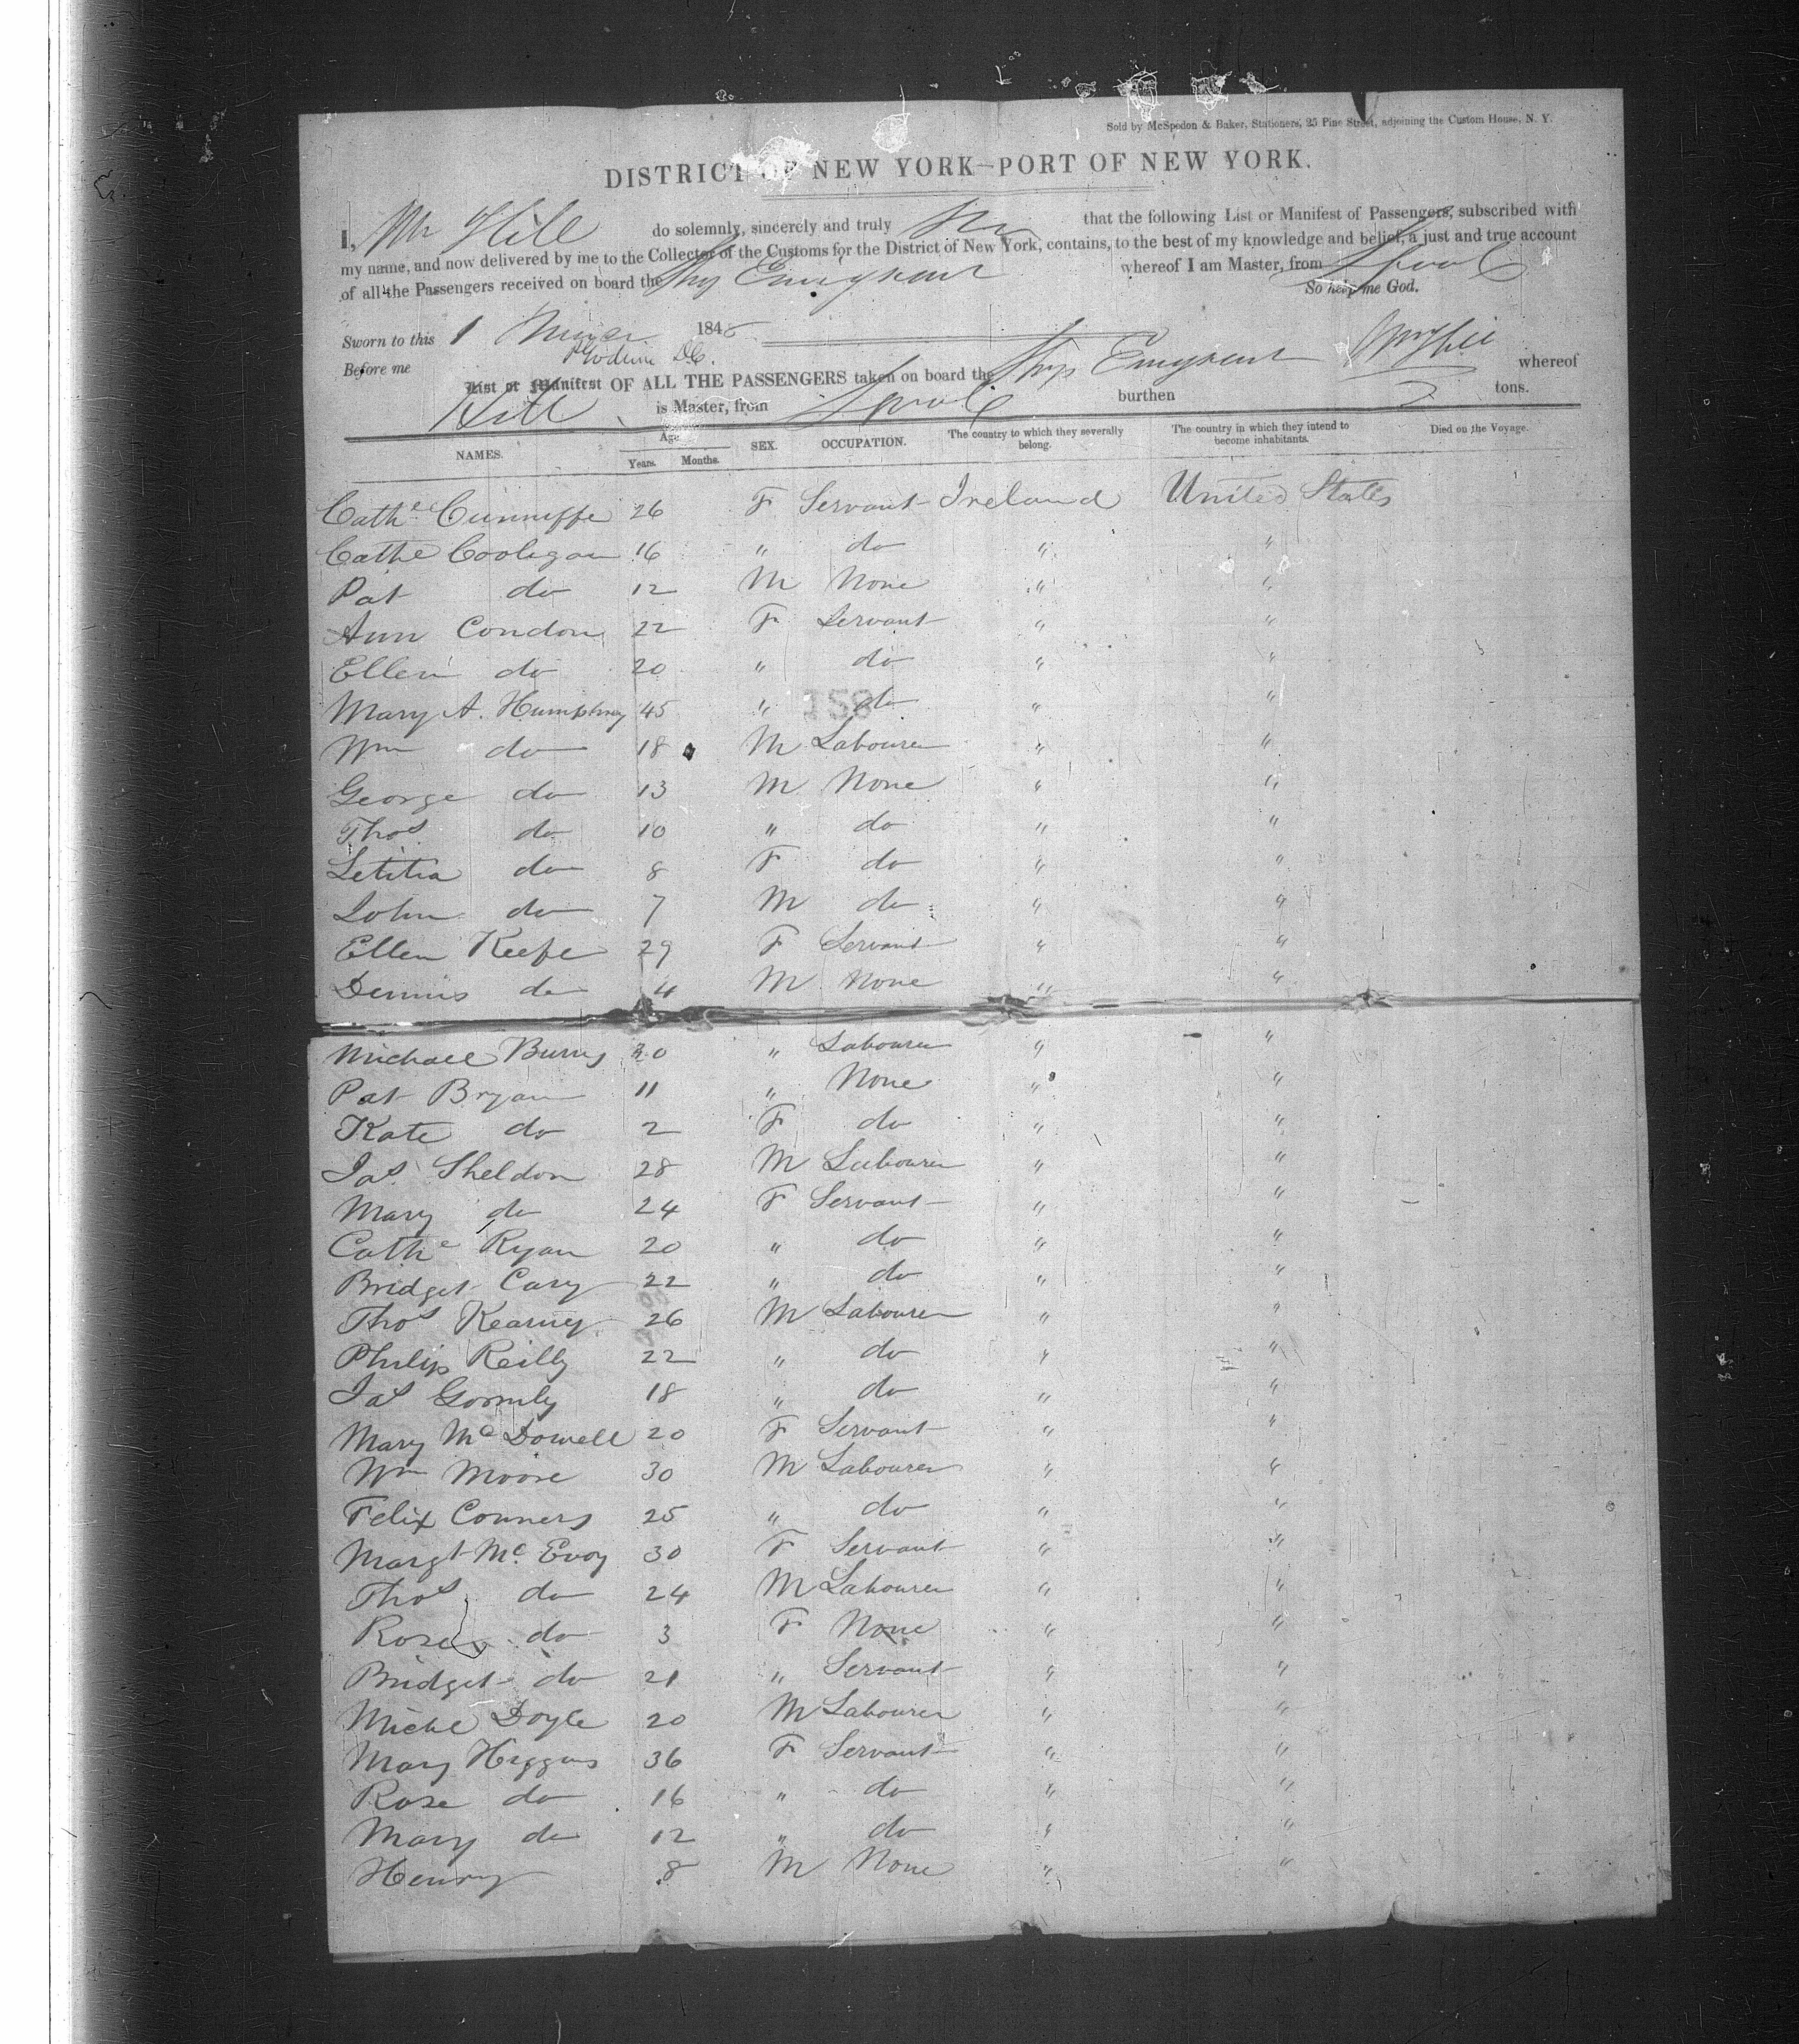 Sold by McSpedon & Baker, Stationers, 25 Pine Street, adjoining the Custom House, N. Y.
DISTRICT OF NEW YORK—PORT OF NEW YORK.
I, Wm Hill do solemnly, sincerely and truly that the following List or Manifest of Passengers, subscribed with
my name, and now delivered by me to the Collector of the Customs for the District of New York, contains, to the best of my knowledge and belief, a just and true account
of all the Passengers received on board the Ship Emigrant whereof I am Master, from Lpool
So help me God.
Sworn to this 1 184
Before me D.C. Wm Hill
List or Manifest OF ALL THE PASSENGERS taken on board the Ship Emigrant whereof
Hill is Master, from Lpool burthen tons.
NAMES. Age Years. Months. SEX. OCCUPATION. The country to which they severally belong. The country in which they intend to become inhabitants. Died on the Voyage.
Cathe Cunniffe 26 F Servant Ireland United States
Cathe Cooligan 16 " do " "
Pat do 12 M None " "
Ann Condon 22 F Servant " "
Ellen do 20 " do " "
Mary A. Humphrey 45 " do " "
158
Wm do 18 M Labourer " "
George do 13 M None " "
Thos do 10 " do " "
Letitia do 8 F do " "
John do 7 M do " "
Ellen Keefe 29 F Servant " "
Dennis do 4 M None " "
Michael Burns 30 " Labourer " "
Pat Bryan 11 " None " "
Kate do 2 F do " "
Jas Sheldon 28 M Labourer " "
Mary do 24 F Servant " "
Cathe Ryan 20 " do " "
Bridget Cary 22 " do " "
Thos Kearney 26 M Labourer " "
Philip Reilly 22 " do " "
Jas Gormly 18 " do " "
Mary McDowell 20 F Servant " "
Wm Moore 30 M Labourer " "
Felix Conners 25 " do " "
Margt McEvoy 30 F Servant " "
Thos do 24 M Labourer " "
Rose do 3 F None " "
Bridget do 21 " Servant " "
Michl Doyle 20 M Labourer " "
Mary Higgins 36 F Servant " "
Rose do 16 " do " "
Mary do 12 " do " "
Henry 8 M None " "